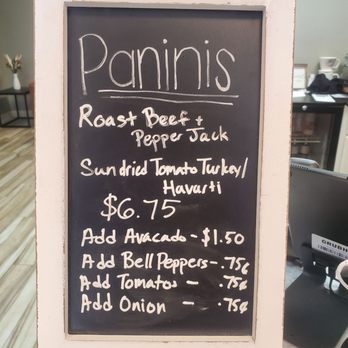 Paninis
Roast Beef +
Pepper Jack
Sundried Tomato Turkey/
Havarti
$6.75
Add Avacado - $1.50
Add Bell Peppers - .75¢
Add Tomatos - .75¢
Add Onion - .75¢
GRUBH